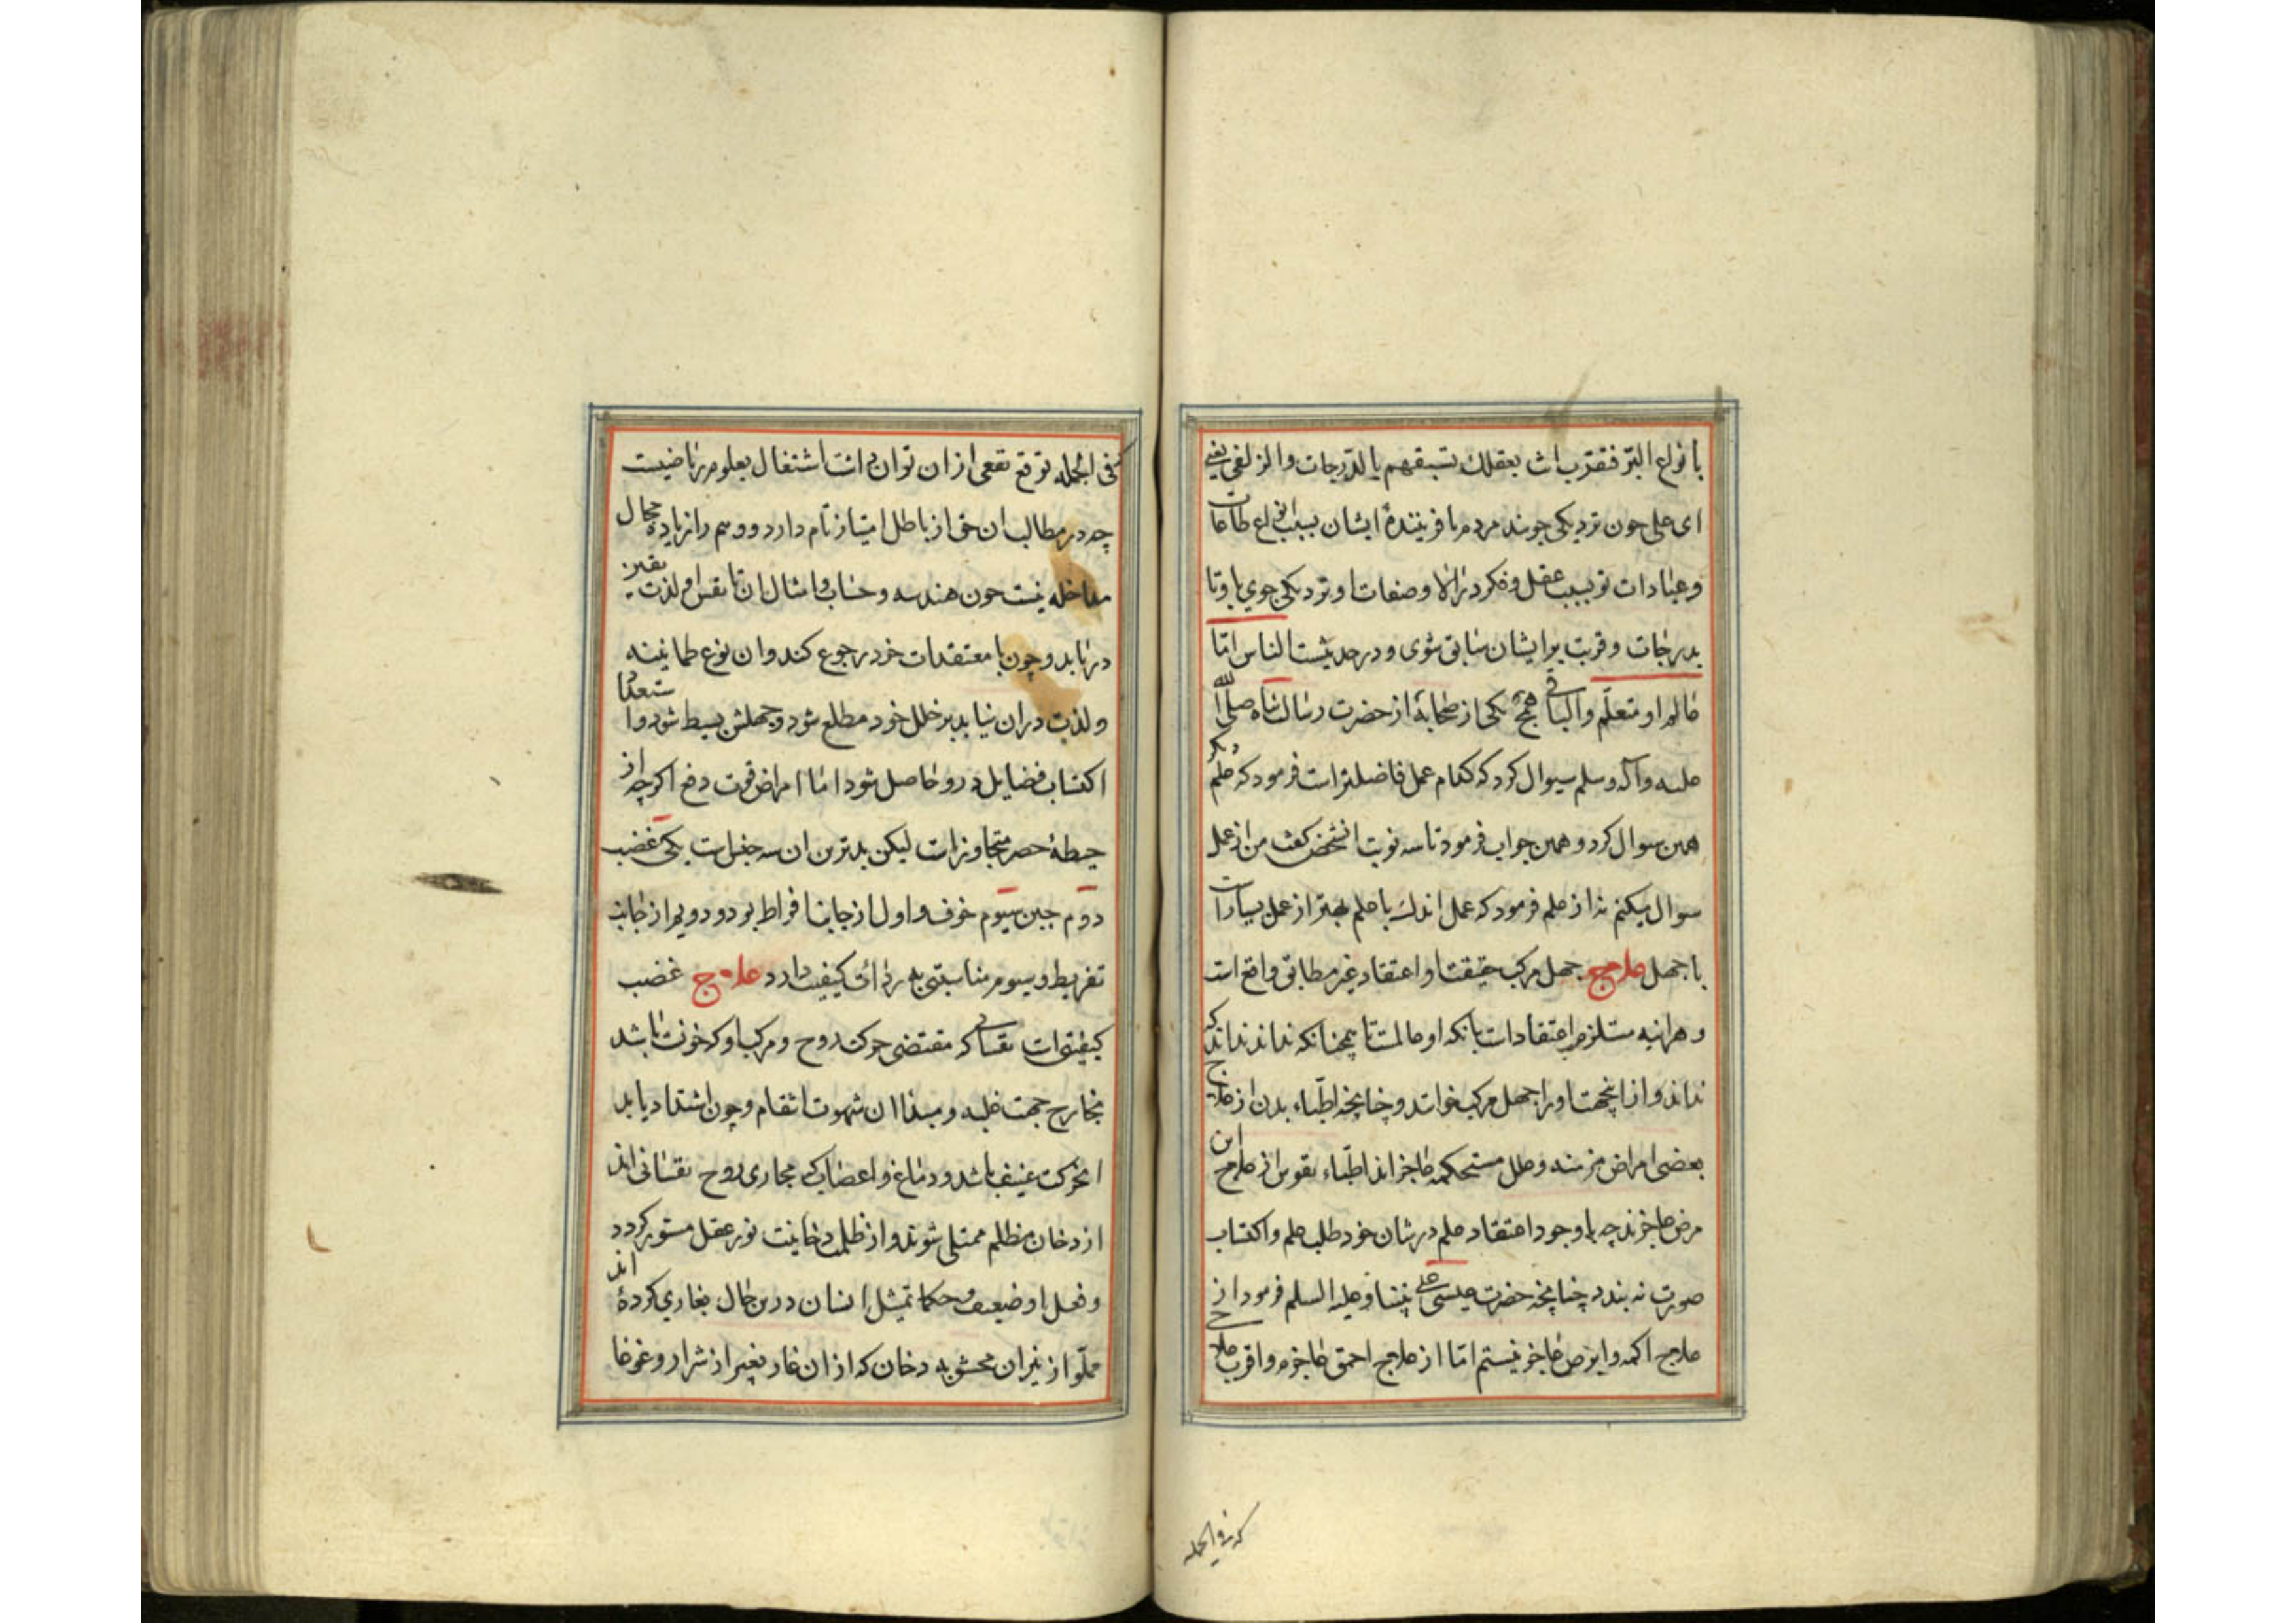 بانواع البرّ فتقرّب انت بعقلك تسبقهم بالدّرجات والزلفی یعنی
ای علی چون نزدیکی جویند مردم بافرینندهٔ ایشان بسبب انواع طاعات
و عبادات تو بسبب عقل و فکر در آلا و صفات او نزدیکی جوی باو تا
بدرجات و قربت بر ایشان سابق شوی و در حدیثست الناس امّا
عالم او متعلّم و الباقی همج یکی از صحابه از حضرت رسالت پناه صلی الله
علیه و آله و سلم سیوال کرد که کدام عمل فاضلتر است فرمود که علم دیگر
همین سوال کرد و همین جواب فرمود تا سه نوبت انشخص گفت من از عمل
سوال میکنم نه از علم فرمود که عمل اندک با علم بهتر از عمل بسیار است
با جهل علاج جهل مرکب حقیقت او اعتقاد غیر مطابق واقع است
و هراینه مستلزم اعتقاد است بانکه او عالمست تا همچنانکه نداند نداند که
نداند و از اینجهت او را جهل مرکب خوانند و چنانچه اطبّاء بدن از علاج
بعضی امراض مزمنه و علل مستحکمه عاجز اند اطبّاء نفوس از علاج این
مرض عاجزند چه با وجود اعتقاد علم در شان خود طلب علم و اکتساب
صورت نه بندد چنانچه حضرت عیسی علی نبینا و علیه السلم فرمود از
علاج اکمه و ابرص عاجز نیستم امّا از علاج احمق عاجزم و اقرب علاج
که فی الجمله
فی الجمله توقع نفعی از ان توان داشت اشتغال بعلوم ریاضیست
چه در مطالب ان حق از باطل امتیاز تام دارد و وهم را زیاده مجال
مداخله نیست چون هندسه و حساب و امثال ان تا نفس او لذت یقین
دریابد و چون با معتقدات خود رجوع کند و ان نوع طمانینه
و لذت در ان نیابد بر خلل خود مطلع شود و جهلش بسیط شود و استعداد
اکتساب فضایل در و حاصل شود اما امراض قوت دفع اکرچه از
حیطهٔ حصر متجاوز است لیکن بدترین ان سه جنس است یکی غضب
دوم جبن سیوم خوف و اول از جانب افراط بود و دویم از جانب
تفریط و سیوم مناسبتی به ردائت کیفیت دارد علاج غضب
کیفیتی است نفسانی که مقتضی حرکت روح و مرکب او که خونست باشد
بخارج جهت غلبه و مبداء ان شهوت انتقام و چون اشتداد یابد
انحرکت عنیف باشد و دماغ و اعصاب که مجاری روح نفسانی اند
از دخان مظلم ممتلی شوند و از ظلمت دخانیت نور عقل مستور کردد
و فعل او ضعیف و حکما تمثیل انسان درین حال بغاری کرده اند
مملّو از نیران محشو به دخان که از ان غار بغیر از شرار و غوغا